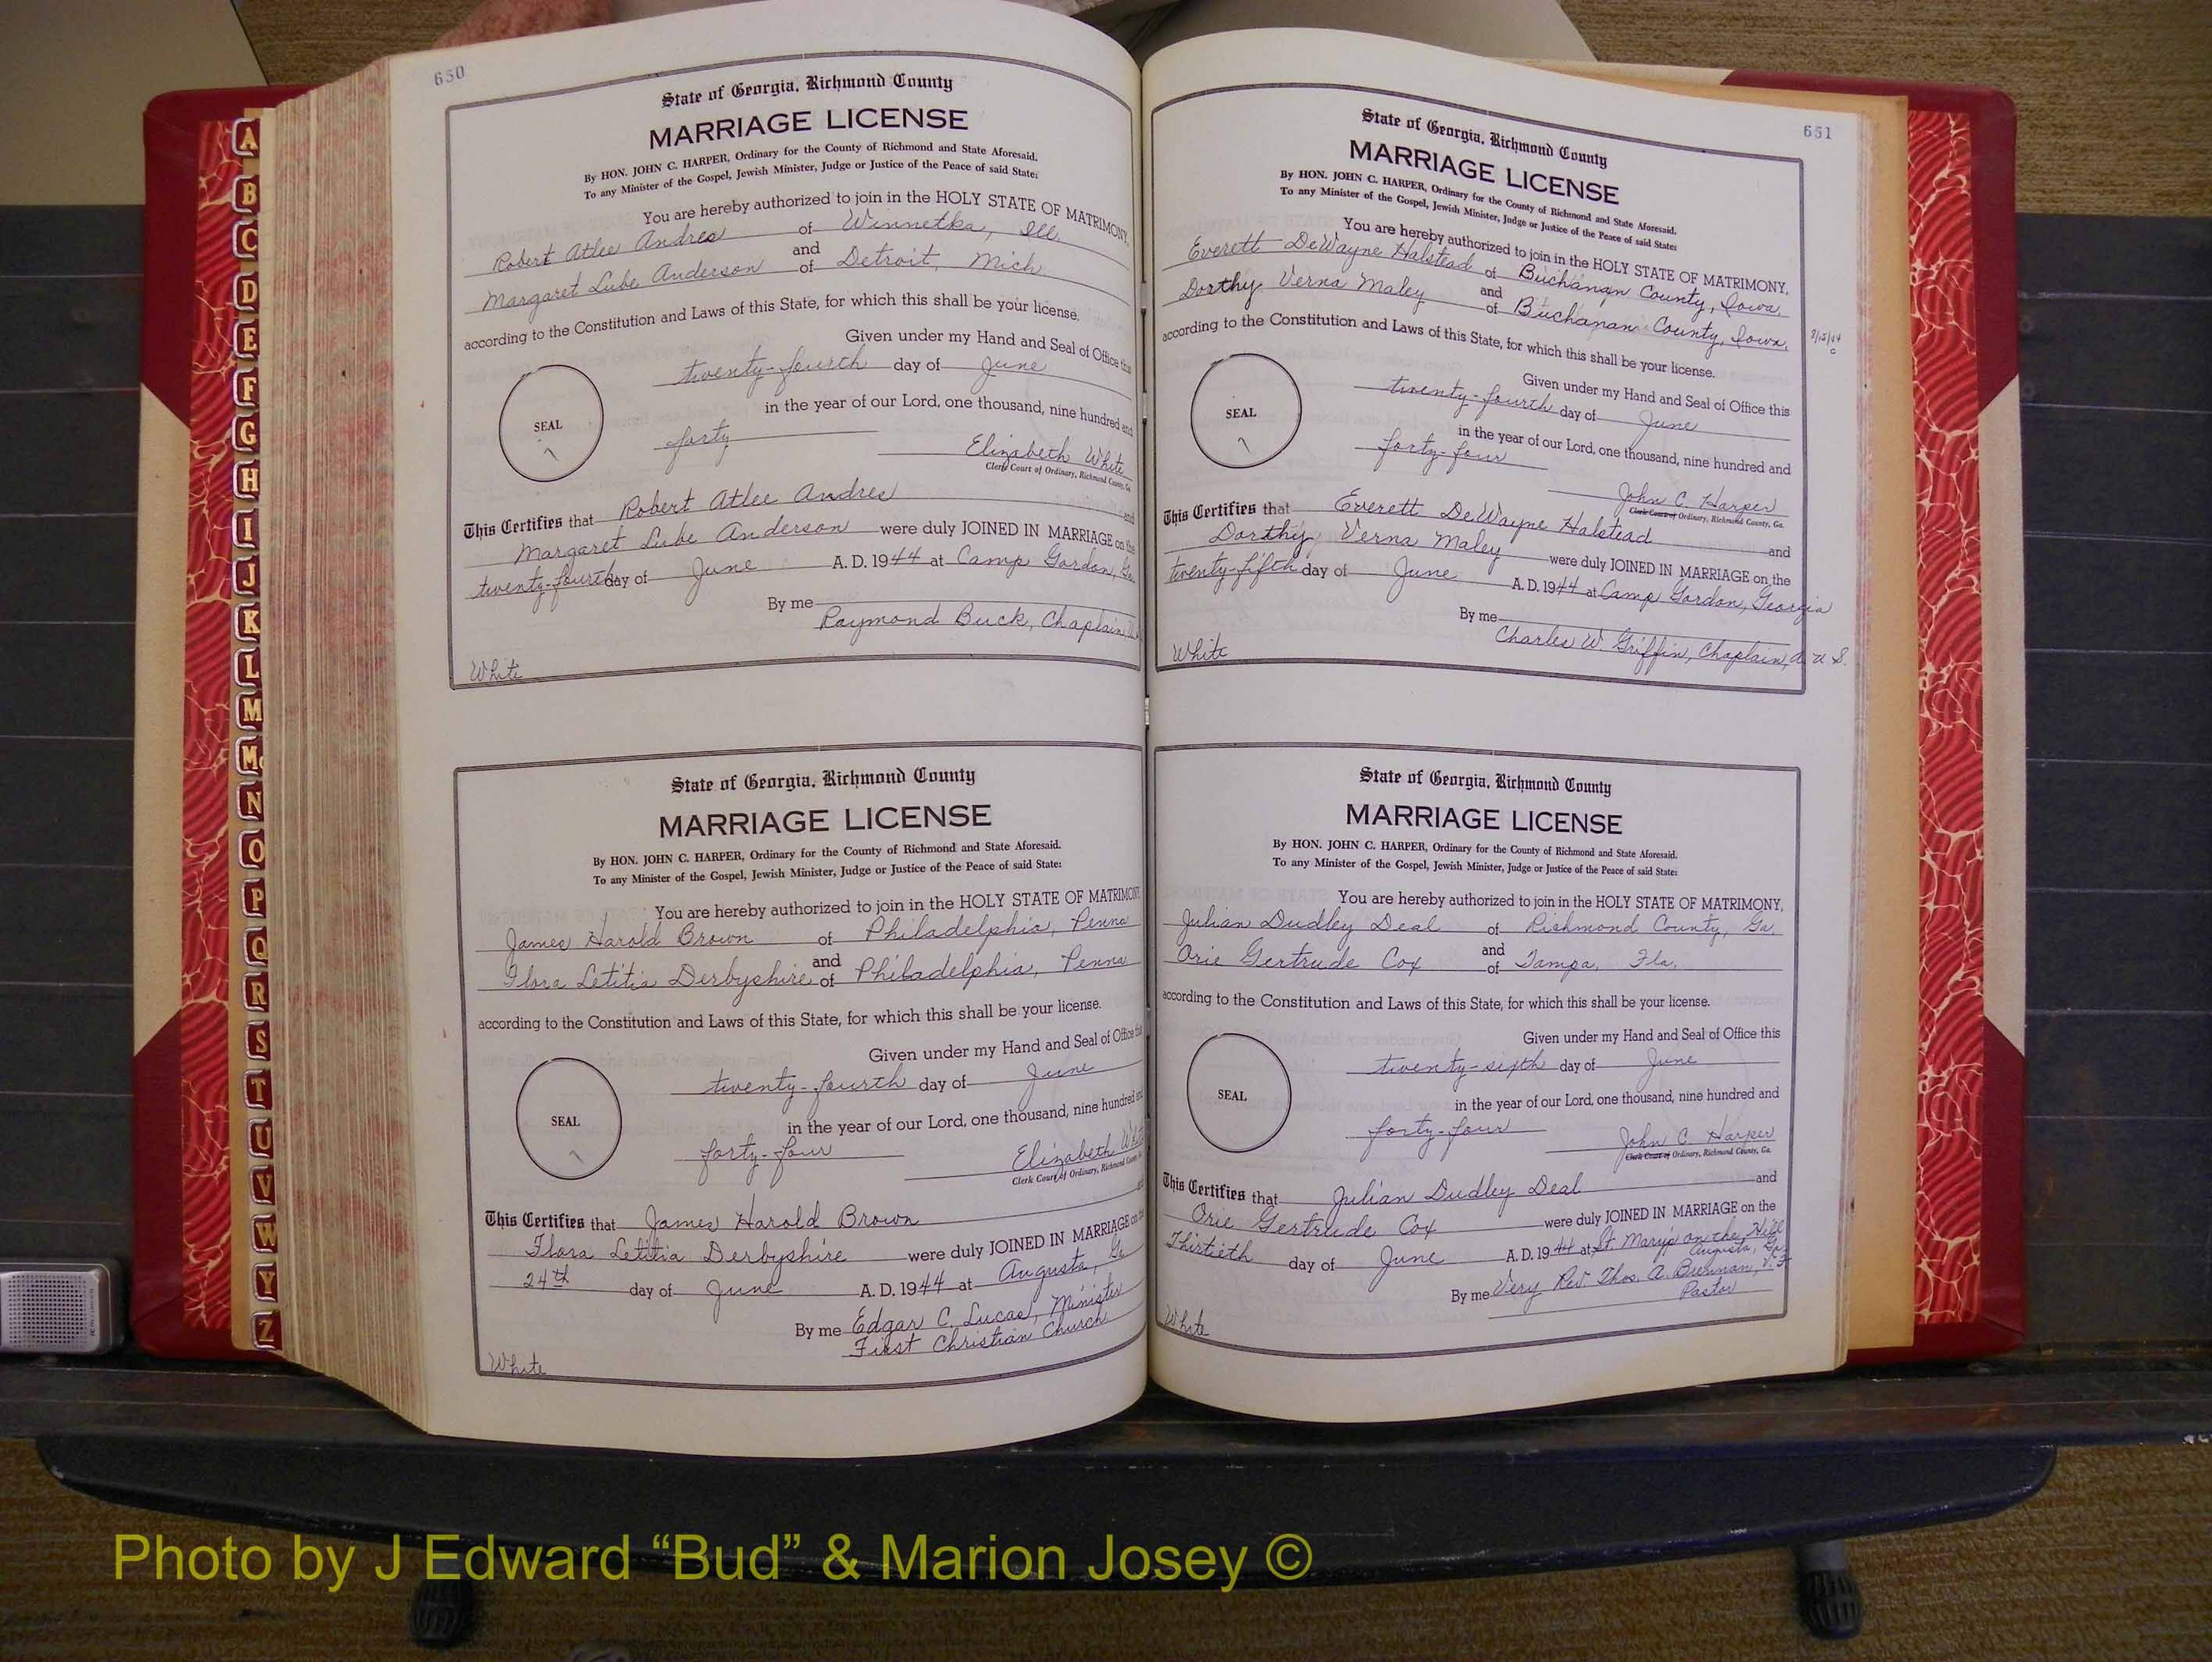 650
State of Georgia, Richmond County
MARRIAGE LICENSE
By HON. JOHN C. HARPER, Ordinary for the County of Richmond and State Aforesaid.
To any Minister of the Gospel, Jewish Minister, Judge or Justice of the Peace of said State:
You are hereby authorized to join in the HOLY STATE OF MATRIMONY,
Robert Atlee Andres of Winnetka, Ill.
and
Margaret Lube Anderson of Detroit, Mich
according to the Constitution and Laws of this State, for which this shall be your license.
Given under my Hand and Seal of Office this
twenty-fourth day of June
in the year of our Lord, one thousand, nine hundred and
SEAL
forty
Elizabeth White
Clerk Court of Ordinary, Richmond County, Ga.
This Certifies that Robert Atlee Andres and
Margaret Lube Anderson were duly JOINED IN MARRIAGE on the
twenty-fourth day of June A. D. 1944 at Camp Gordon, Ga
By me
Raymond Buck, Chaplain
White
State of Georgia, Richmond County
MARRIAGE LICENSE
By HON. JOHN C. HARPER, Ordinary for the County of Richmond and State Aforesaid.
To any Minister of the Gospel, Jewish Minister, Judge or Justice of the Peace of said State:
You are hereby authorized to join in the HOLY STATE OF MATRIMONY
James Harold Brown of Philadelphia, Penna
and
Flora Letitia Derbyshire of Philadelphia, Penna
according to the Constitution and Laws of this State, for which this shall be your license.
Given under my Hand and Seal of Office this
twenty-fourth day of June
in the year of our Lord, one thousand, nine hundred and
SEAL
forty-four
Elizabeth White
Clerk Court of Ordinary, Richmond County
This Certifies that James Harold Brown and
Flora Letitia Derbyshire were duly JOINED IN MARRIAGE on the
24th day of June A. D. 1944 at Augusta, Ga
By me Edgar C. Lucas, Minister
First Christian Church
White
651
State of Georgia, Richmond County
MARRIAGE LICENSE
By HON. JOHN C. HARPER, Ordinary for the County of Richmond and State Aforesaid.
To any Minister of the Gospel, Jewish Minister, Judge or Justice of the Peace of said State:
You are hereby authorized to join in the HOLY STATE OF MATRIMONY,
Everett DeWayne Halstead of Buchanan County, Iowa,
and
Dorthy Verna Maley of Buchanan County, Iowa,
according to the Constitution and Laws of this State, for which this shall be your license.
Given under my Hand and Seal of Office this
twenty-fourth day of June
in the year of our Lord, one thousand, nine hundred and
SEAL
forty-four
John C. Harper
Clerk Court of Ordinary, Richmond County, Ga.
This Certifies that Everett DeWayne Halstead and
Dorthy Verna Maley were duly JOINED IN MARRIAGE on the
twenty-fifth day of June A. D. 1944 at Camp Gordon, Georgia
By me
Charles W. Griffin, Chaplain, A. U. S.
White
State of Georgia, Richmond County
MARRIAGE LICENSE
By HON. JOHN C. HARPER, Ordinary for the County of Richmond and State Aforesaid.
To any Minister of the Gospel, Jewish Minister, Judge or Justice of the Peace of said State:
You are hereby authorized to join in the HOLY STATE OF MATRIMONY,
Julian Dudley Deal of Richmond County, Ga.
and
Orie Gertrude Cox of Tampa, Fla.
according to the Constitution and Laws of this State, for which this shall be your license.
Given under my Hand and Seal of Office this
twenty-sixth day of June
in the year of our Lord, one thousand, nine hundred and
SEAL
forty-four
John C. Harper
Clerk Court of Ordinary, Richmond County, Ga.
This Certifies that Julian Dudley Deal and
Orie Gertrude Cox were duly JOINED IN MARRIAGE on the
Thirtieth day of June A. D. 1944 at St. Mary's on the Hill
Augusta, Ga.
By me Very Rev. Thos. A. Brennan, V. F.
Pastor
White
A
B
C
D
E
F
G
H
I
J
K
L
M
Mc
N
O
P
Q
R
S
T
U
V
W
Y
Z
Photo by J Edward “Bud” & Marion Josey ©